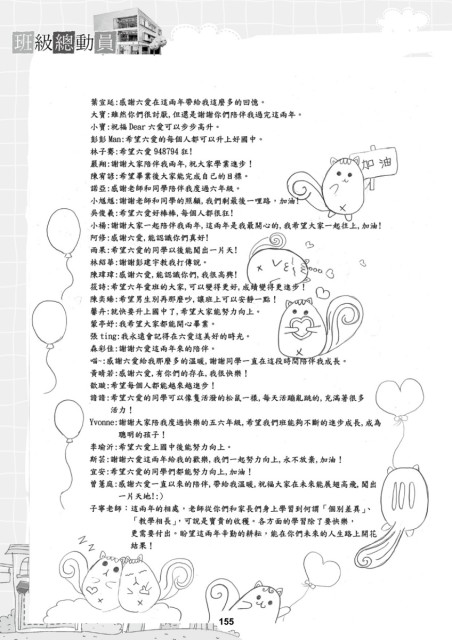 班級總動員
葉宜延:感謝六愛在這兩年帶給我這麼多的回憶。
大寶:雖然你們很討厭,但還是謝謝你們陪伴我過完這兩年。
小寶:祝福Dear六愛可以步步高升。
彭彭Man:希望六愛的每個人都可以升上好國中。
林子騫:希望六愛948794狂!
嚴翔:謝謝大家陪伴我兩年,祝大家學業進步!
陳宥諮:希望畢業後大家能完成自己的目標。
諾亞:感謝老師和同學陪伴我度過六年級。
小尴尬:謝謝老師和同學的照顧,我們剩最後一哩路,加油!
吳俊羲:希望六愛好棒棒,每個人都很狂!
小楊:謝謝大家一起陪伴我兩年,這兩年是我最開心的,我希望大家一起往上,加油!
阿修:感謝六愛,能認識你們真好!
雨果:希望六愛的同學以後能闖出一片天!
林紹華:謝謝彭建宇教我打傳說。
陳瑋瑋:感謝六愛,能認識你們,我很高興!
筱詩:希望六年愛班的大家,可以變得更好,成績變得更進步!
陳奕臻:希望男生別再那麼吵,讓班上可以安靜一點!
馨卉:就快要升上國中了,希望大家能努力向上。
紫亭妤:我希望大家都能開心畢業。
張ting:我永遠會記得在六愛這美好的時光。
森彩佳:謝謝六愛這兩年來的陪伴。
喵~:感謝六愛給我那麼多的溫暖,謝謝同學一直在這段時間陪伴我成長。
黃晴若:感謝六愛,有你們的存在,我很快樂!
歆璇:希望每個人都能越來越進步!
諳諳:希望六愛的同學可以像隻活潑的松鼠一樣,每天活蹦亂跳的,充滿著很多
活力!
Yvonne:謝謝大家陪我度過快樂的五六年級,希望我們班能夠不斷的進步成長,成為
聰明的孩子!
李瑜沂:希望六愛上國中後能努力向上。
靳芸:謝謝六愛這兩年給我的歡樂,我們一起努力向上,永不放棄,加油!
宜安:希望六愛的同學們都能努力向上,加油!
曾薰庭:感謝六愛一直以來的陪伴,帶給我溫暖,祝福大家在未來能展翅高飛,闖出
一片天地!:)
子寧老師:這兩年的相處,老師從你們和家長們身上學習到何謂「個別差異」、
「教學相長」,可說是寶貴的收穫。各方面的學習除了要快樂,
更需要付出。盼望這兩年辛勤的耕耘,能在你們未來的人生路上開花
結果!
加油
155